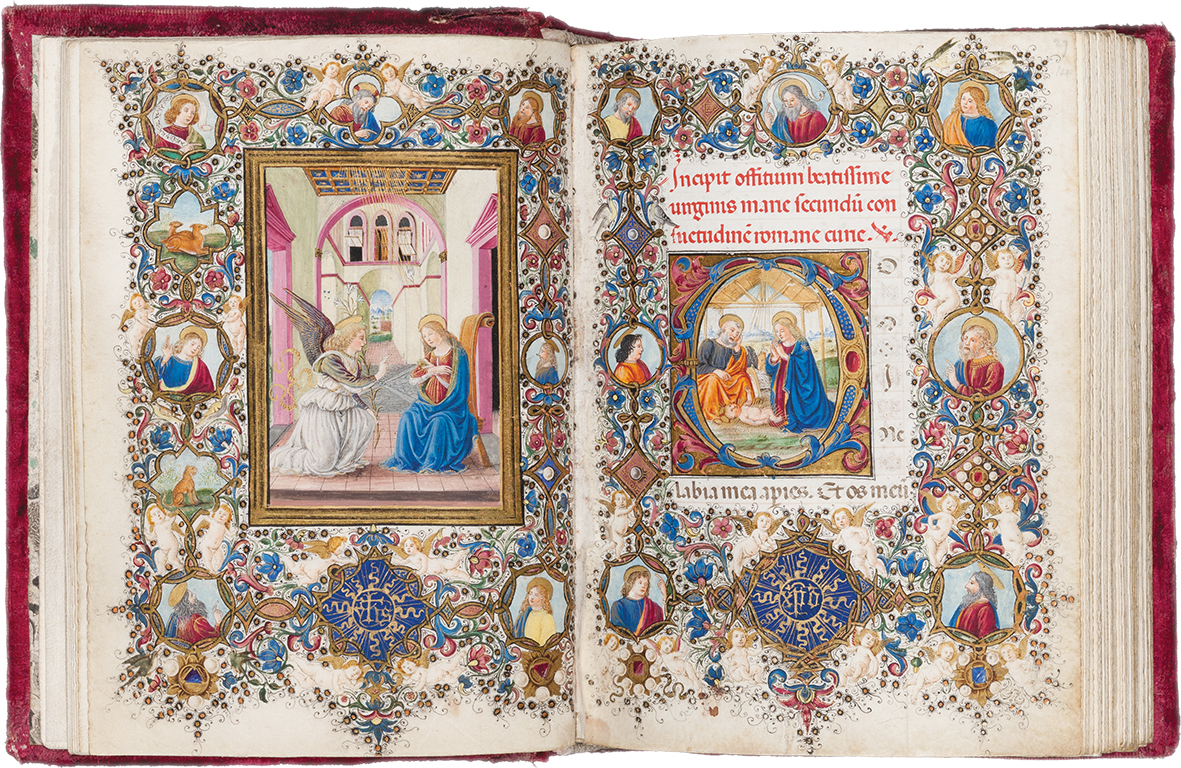 yhs
Incipit offitium beatissime
uirginis marie secundū con
suetudinē romane curie. ℣.
D
Ne
labia mea apies. Et os meū
xpo